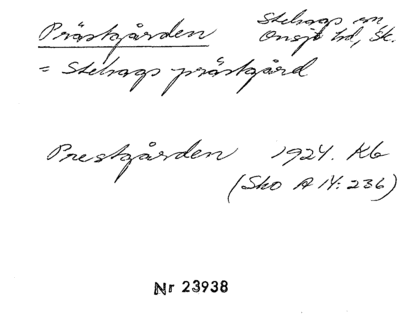 Prästgården Stehags sn
Onsjö hd, Sk.
= Stehags prästgård
Prestgården 1924. Kb
(Sko A 14: 236)
Nr 23938